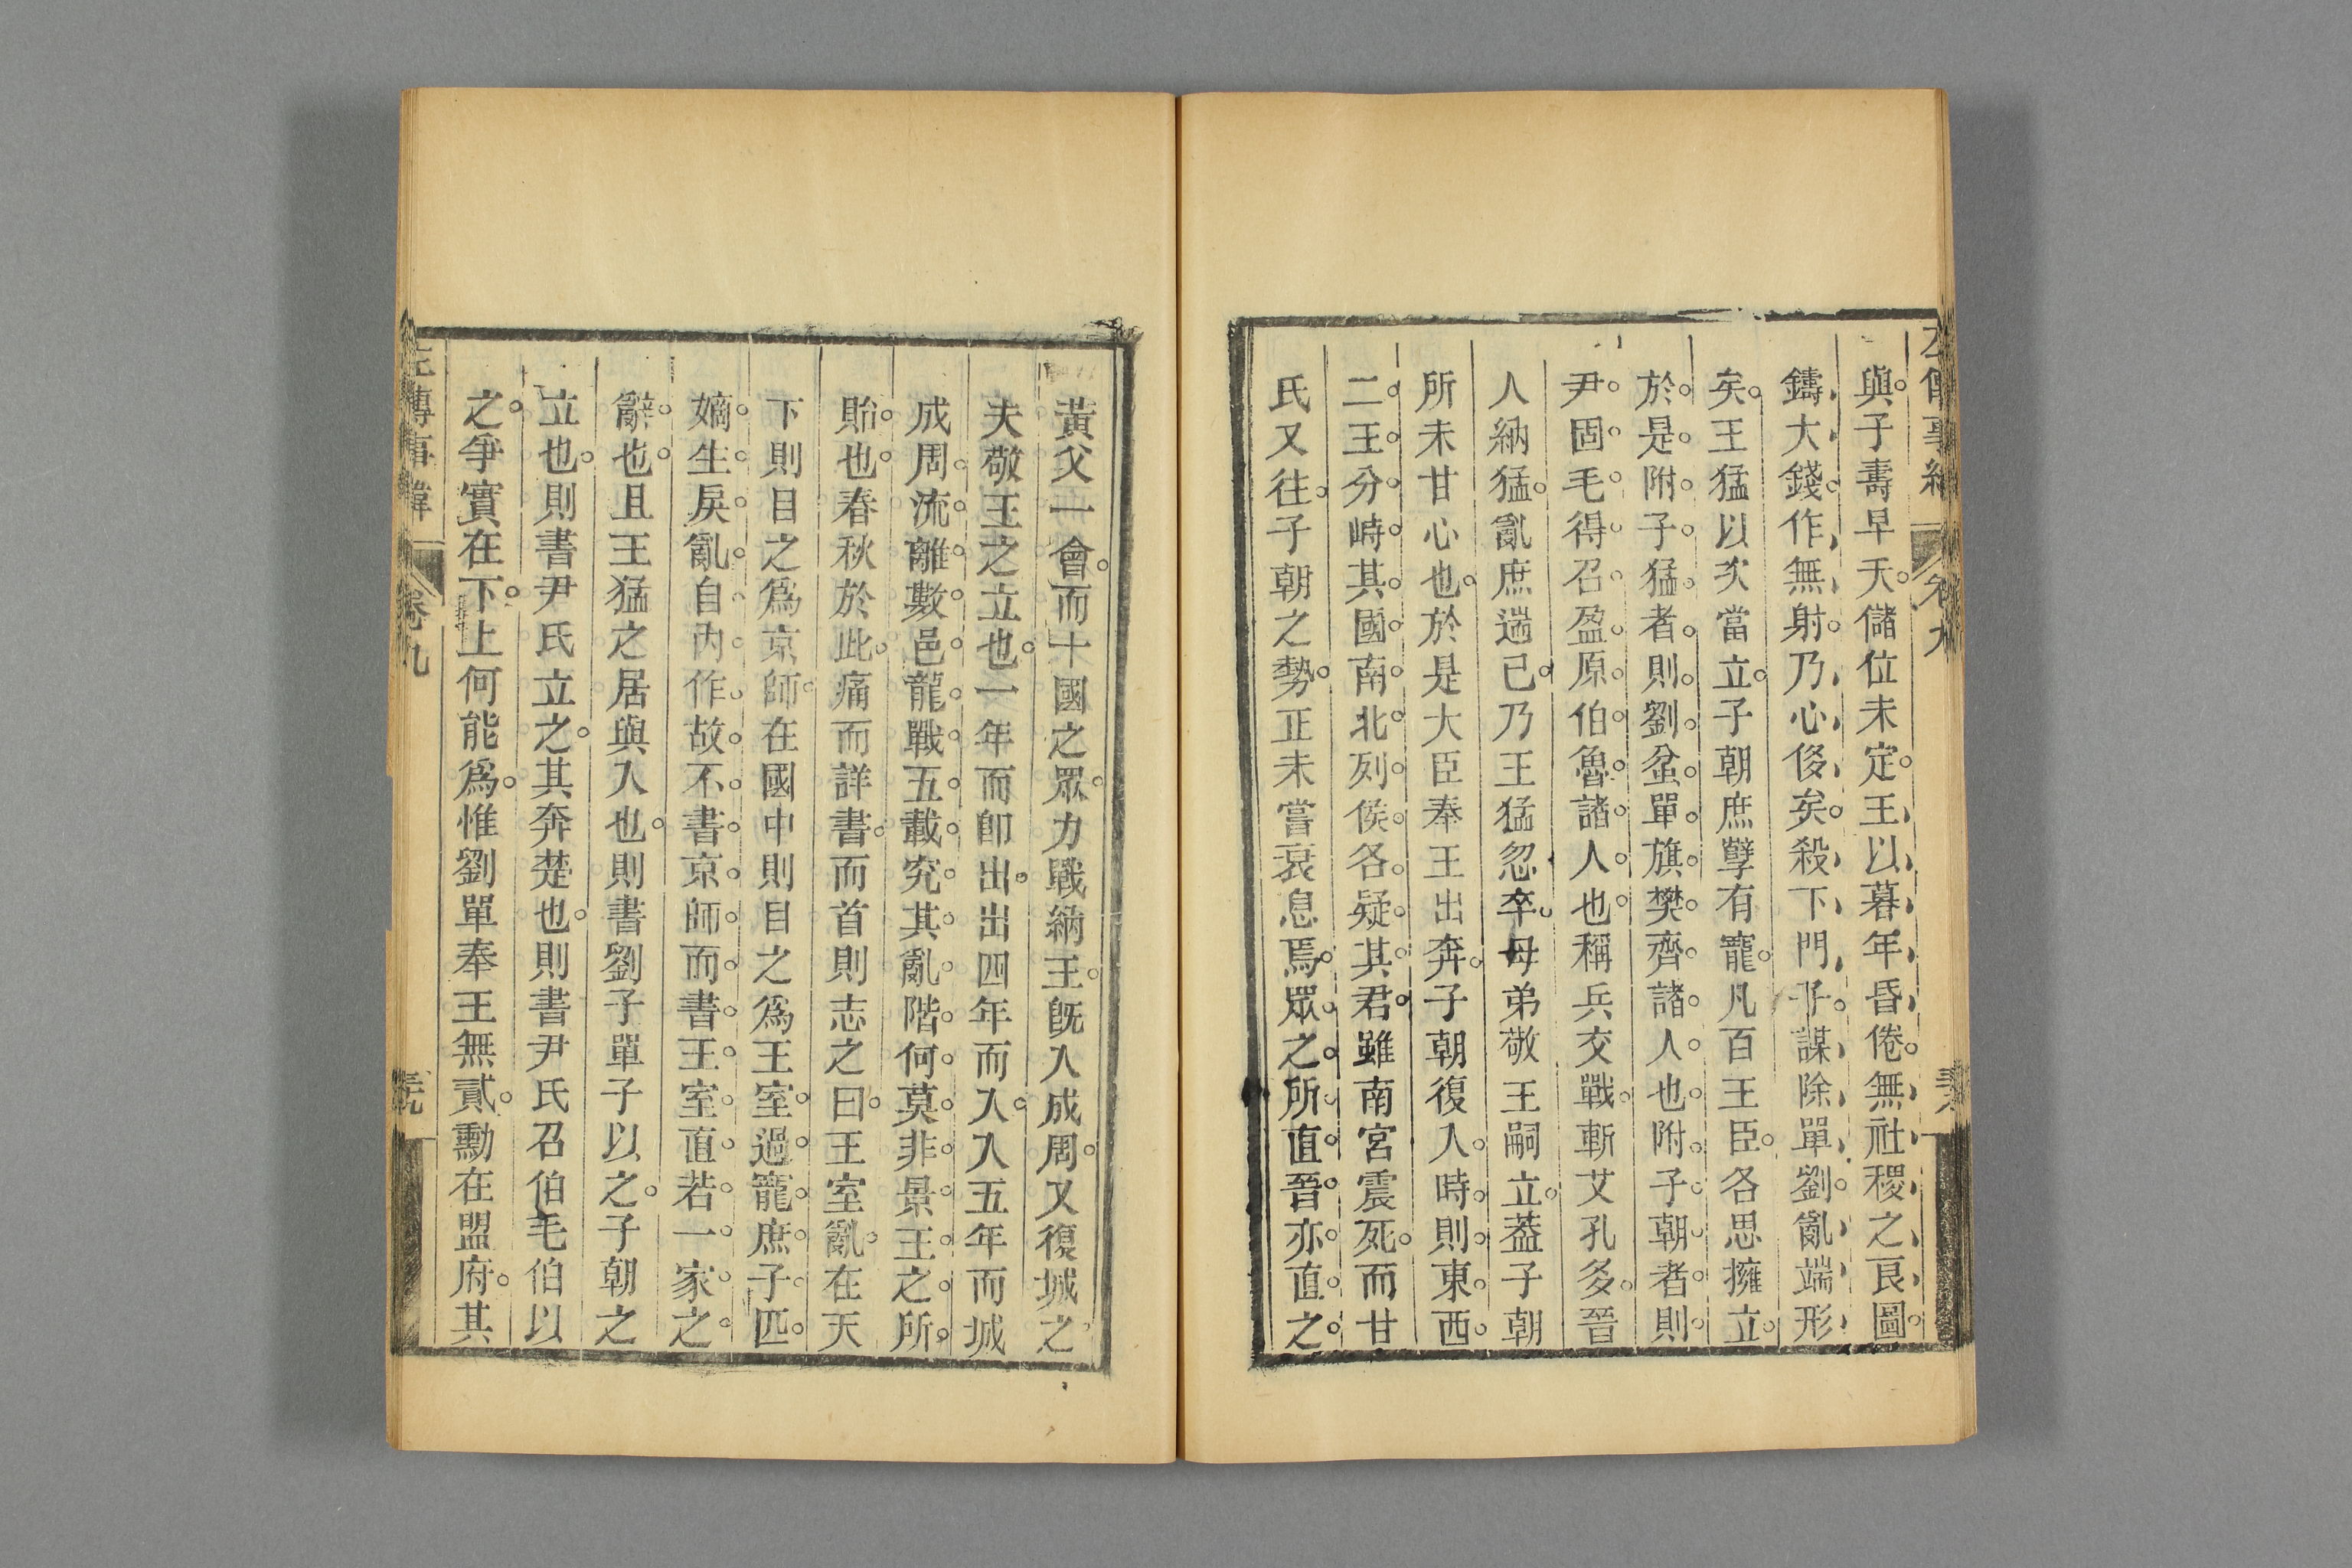 左傳事緯
卷九
與子壽早夭儲位未定王以暮年昏倦無社稷之良圖
鑄大錢作無射乃心侈矣殺下門子謀除單劉亂端形
矣王猛以次當立子朝庶孽有寵凡百王臣各思擁立
於是附子猛者則劉蚠單旗樊齊諸人也附子朝者則
尹固毛得召盈原伯魯諸人也稱兵交戰斬艾孔多晉
人納猛亂庶遄已乃王猛忽卒母弟敬王嗣立葢子朝
所未甘心也於是大臣奉王出奔子朝復入時則東西
二王分峙其國南北列侯各疑其君雖南宮震死而甘
氏又往子朝之勢正未嘗衰息焉眾之所直晉亦直之
黃父一會而十國之眾力戰納王旣入成周又復城之
夫敬王之立也一年而卽出出四年而入入五年而城
成周流離數邑龍戰五載究其亂階何莫非景王之所
貽也春秋於此痛而詳書而首則志之曰王室亂在天
下則目之爲京師在國中則目之爲王室過寵庶子匹
嫡生戾亂自內作故不書京師而書王室直若一家之
辭也且王猛之居與入也則書劉子單子以之子朝之
立也則書尹氏立之其奔楚也則書尹氏召伯毛伯以
之爭實在下上何能爲惟劉單奉王無貳勳在盟府其
左傳事緯
卷九